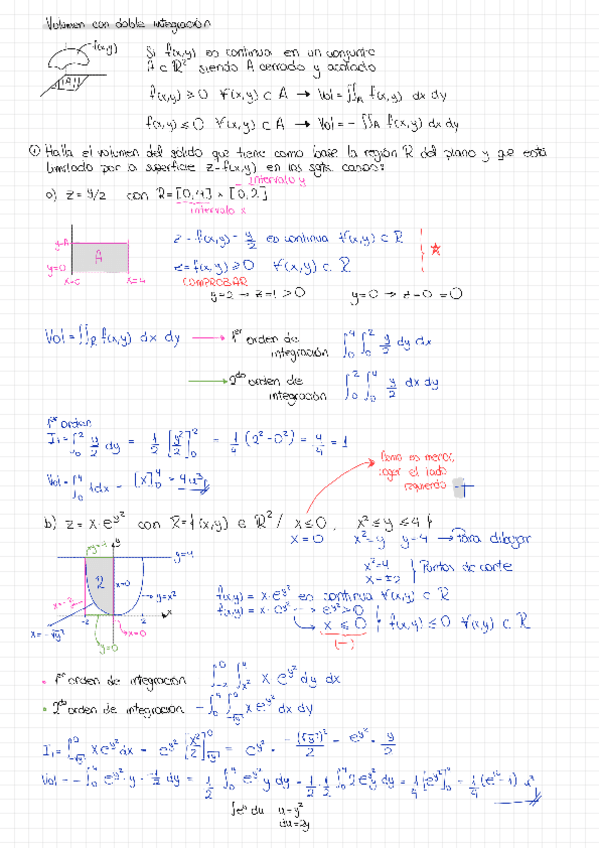 Volumen con doble integración
f(x,y)
A
Si f(x,y) es continua en un conjunto
A ⊂ ℝ² siendo A cerrado y acotado
f(x,y) ≥ 0 ∀(x,y) ⊂ A → Vol = ∬_A f(x,y) dx dy
f(x,y) ≤ 0 ∀(x,y) ⊂ A → Vol = - ∬_A f(x,y) dx dy
① Halla el volumen del sólido que tiene como base la región R del plano y que está
limitado por la superficie z=f(x,y) en los sgts. casos:
intervalo y
a) z = y/2 con R = [0,4] × [0,2]
intervalo x
A
y=0
x=0 x=4
z = f(x,y) = y/2 es continua ∀(x,y) ⊂ R
z = f(x,y) ≥ 0 ∀(x,y) ⊂ R
COMPROBAR
y=2 → z=1 > 0 y=0 → z=0 = 0
Vol = ∬_R f(x,y) dx dy → 1er orden de integración ∫₀⁴ ∫₀² y/2 dy dx
→ 2do orden de integración ∫₀² ∫₀⁴ y/2 dx dy
1er orden
I₁ = ∫₀² y/2 dy = 1/2 [y²/2]₀² = 1/4 (2²-0²) = 4/4 = 1
Vol = ∫₀⁴ 1 dx = [x]₀⁴ = 4u³
Como es menor,
coger el lado
izquierdo
b) z = x·e^y² con R = {(x,y) ∈ ℝ² / x ≤ 0, x² ≤ y ≤ 4}
x = 0 x² = y y = 4 → Para dibujar
x² = 4
x = ±2
Puntos de corte
y=4
y
y=4
R
x=0
x=-2
y=x²
x
-2
2
x=-√y
x=0
y=0
f(x,y) = x·e^y² es continua ∀(x,y) ⊂ R
f(x,y) = x·e^y² → e^y² > 0
x ≤ 0
f(x,y) ≤ 0 ∀(x,y) ⊂ R
(-)
• 1er orden de integración ∫₋₂⁰ ∫ₓ²⁴ x e^y² dy dx
• 2do orden de integración - ∫₀⁴ ∫₋√y⁰ x e^y² dx dy
I₁ = ∫₋√y⁰ x e^y² dx = e^y² [x²/2]⁰ = e^y² · -(√y²)²/2 = e^y² · y/2
Vol = - ∫₀⁴ e^y² · y · -1/2 dy = 1/2 ∫₀⁴ e^y² y dy = 1/2 · 1/2 ∫₀⁴ 2e^y² y dy = 1/4 [e^y²]₀⁴ = 1/4 (e¹⁶-1) u³
∫eᵘ du u = y²
du = 2y